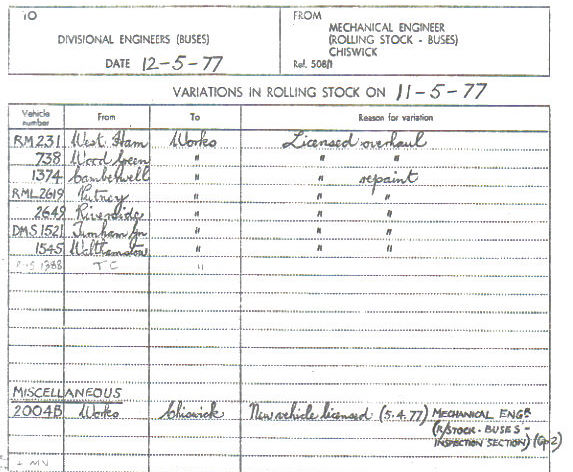 TO
DIVISIONAL ENGINEERS (BUSES)
DATE 12-5-77
FROM
MECHANICAL ENGINEER
(ROLLING STOCK - BUSES)
CHISWICK
Ref. 508/1
VARIATIONS IN ROLLING STOCK ON 11-5-77
Vehicle number From To Reason for variation
RM231 West Ham Works Licensed overhaul
738 Wood Green " " "
1374 Camberwell " " repaint
RML2619 Putney " " "
2649 Riverside " " "
DMS1521 Turnham Gn " " "
1545 Walthamstow " " "
1388 TC "
MISCELLANEOUS
2004B Works Chiswick New vehicle licensed (5.4.77) MECHANICAL ENGR
(R/STOCK - BUSES -
INSPECTION SECTION) (Gp2)